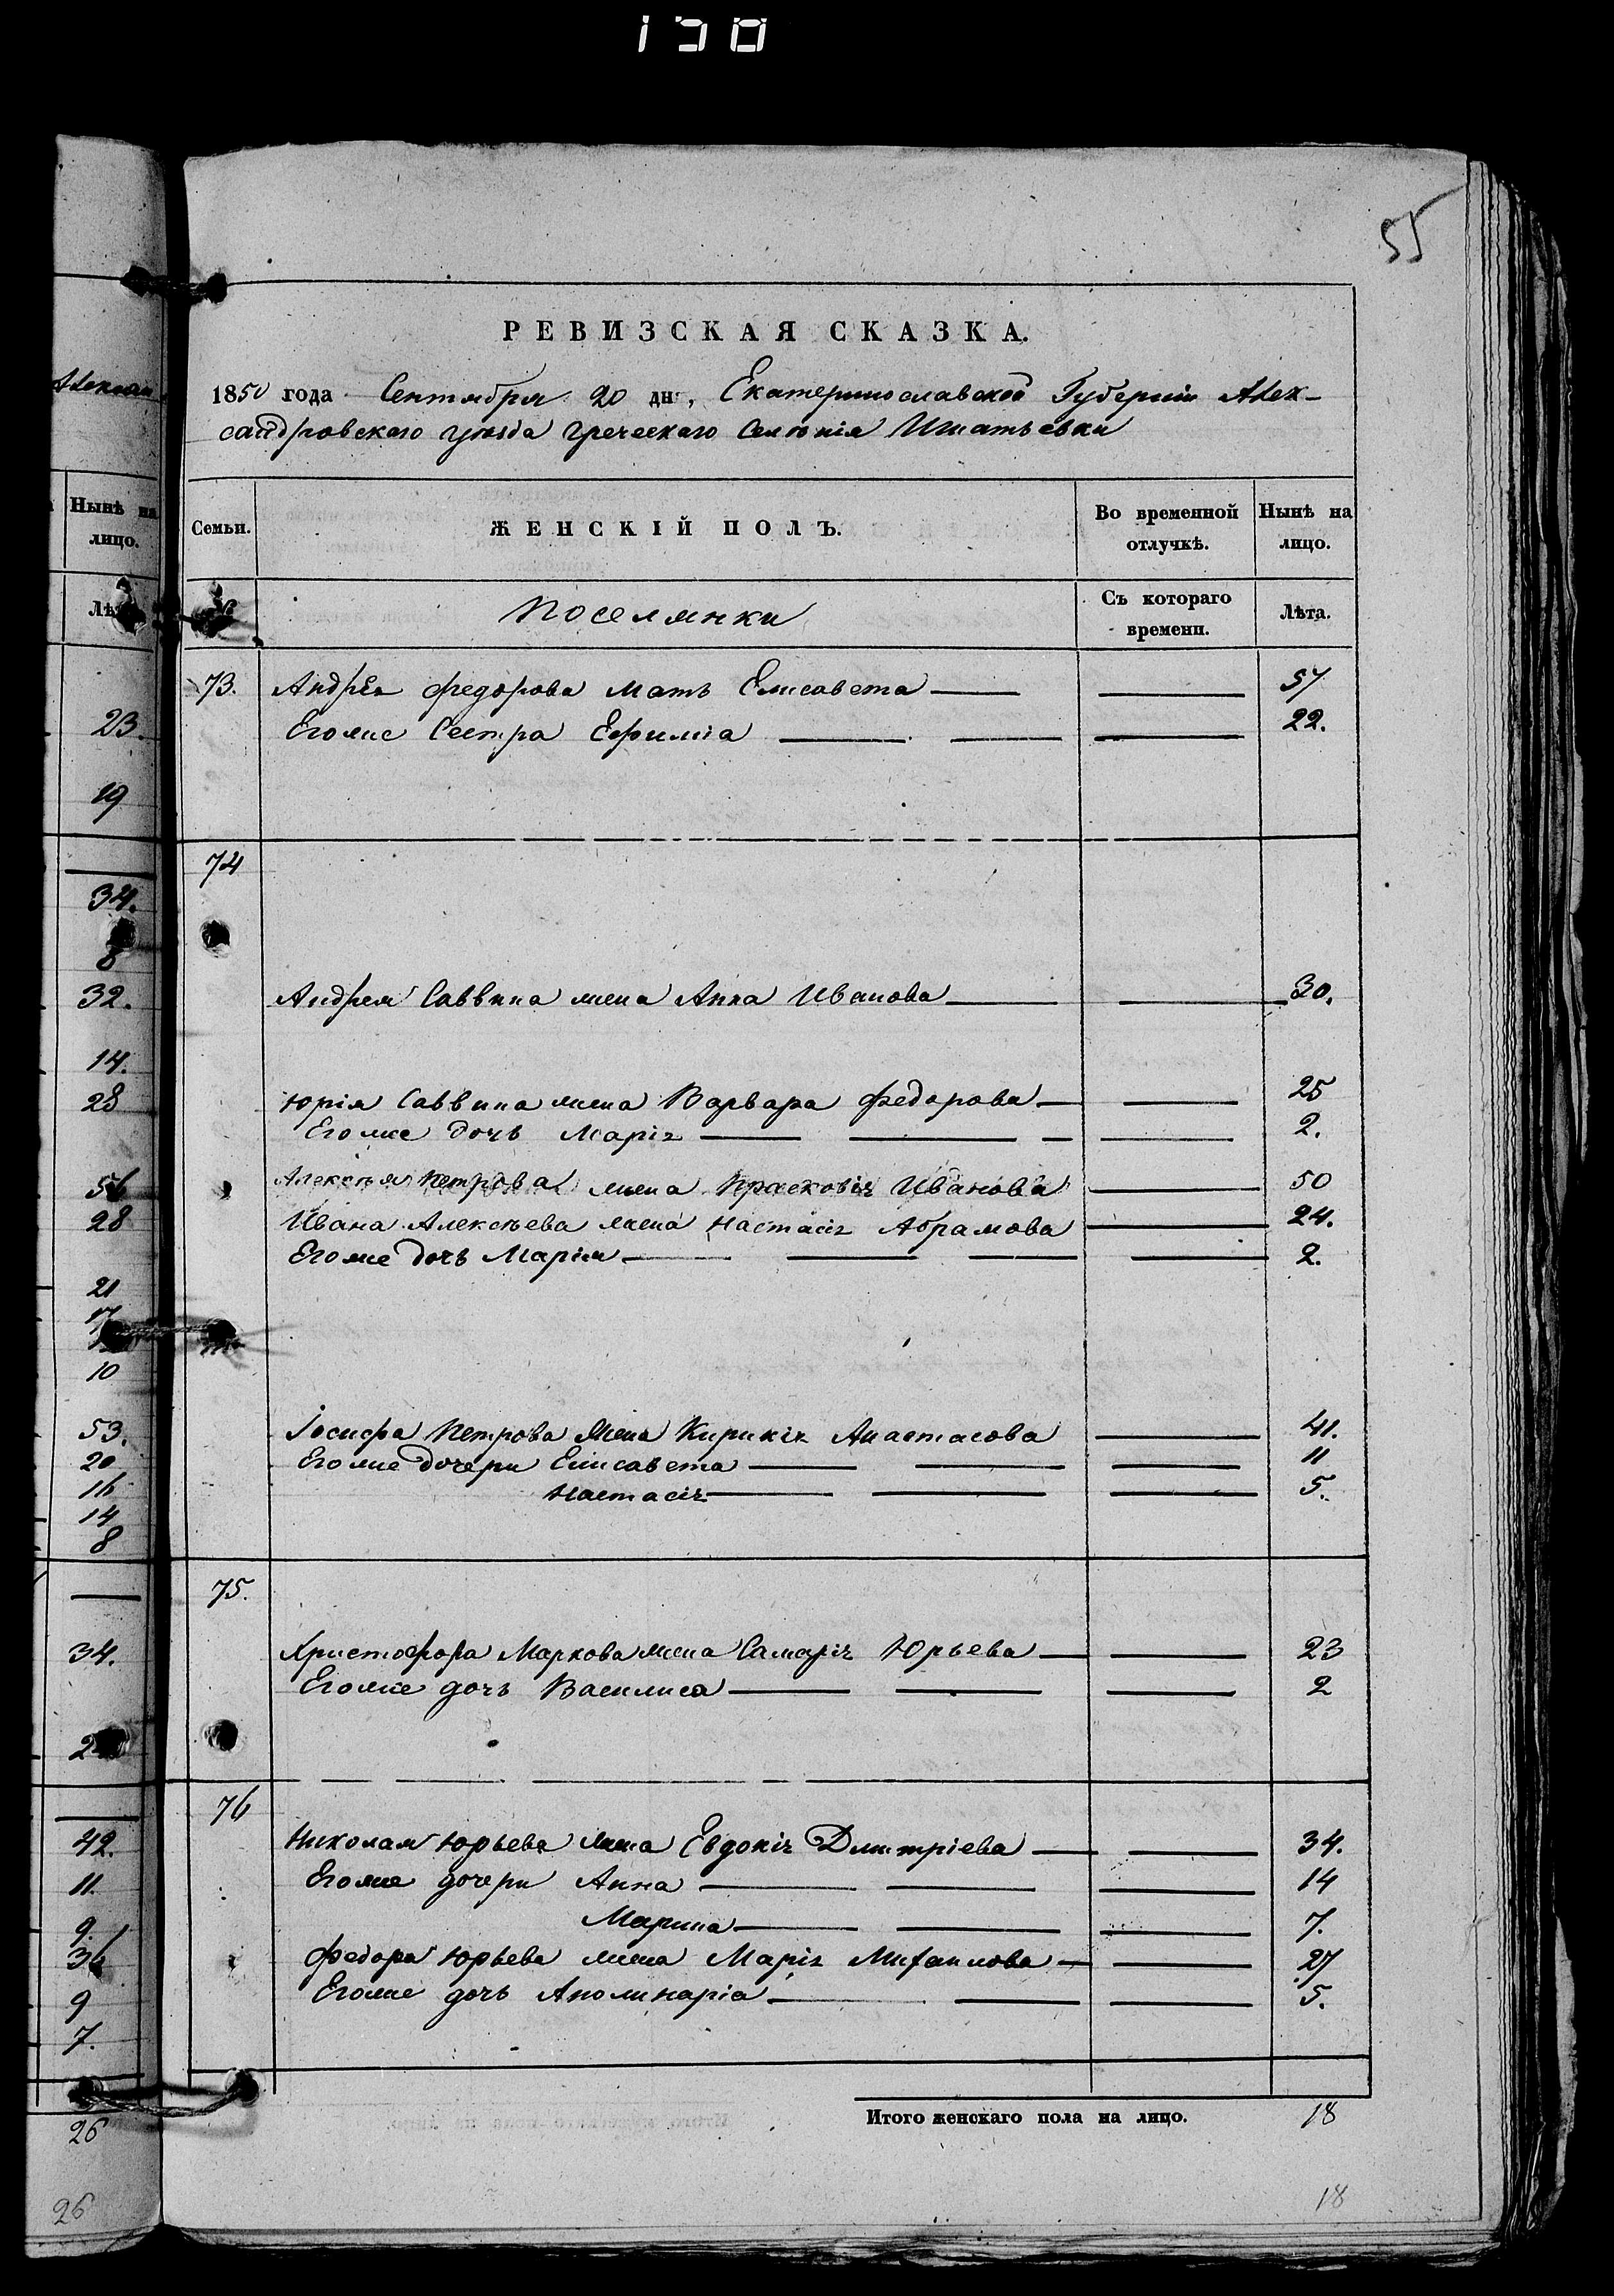 150
55
РЕВИЗСКАЯ СКАЗКА.
1850 года Сентября 20 дня, Екатеринославской Губерніи Алек-
сандровскаго уѣзда Греческаго Селенія Игнатьевки
Семьи. ЖЕНСКІЙ ПОЛЪ. Во временной отлучкѣ. Нынѣ на лицо.
№ Поселянки Съ котораго времени. Лѣта.
73. Андрея Федорова мать Елисавета 57
Егоже Сестра Ефимія 22.
74
Андрея Саввина жена Анна Иванова 30.
Юрія Саввина жена Варвара Федорова 25
Егоже дочь Марія 2.
Алексѣя Петрова жена Прасковія Иванова 50
Ивана Алексѣева жена Настасія Абрамова 24.
Егоже дочь Марія 2.
Іосифа Петрова жена Кирикія Анастасова 41.
Егоже дочери Елисавета 11
Настасія 5.
75.
Христофора Маркова жена Самарія Юрьева 23
Егоже дочь Василиса 2
76
Николая Юрьева жена Евдокія Дмитріева 34.
Егоже дочери Анна 14
Марина 7.
Федора Юрьева жена Марія Михаилова 27
Егоже дочь Аполинарія 5.
Итого женскаго пола на лицо. 18
18
Нынѣ на
лицо.
23.
19
34.
8
32.
14.
28
56
28
21
10
53.
20
16
14
8
34.
42.
11.
9.
36
9
7.
26
26